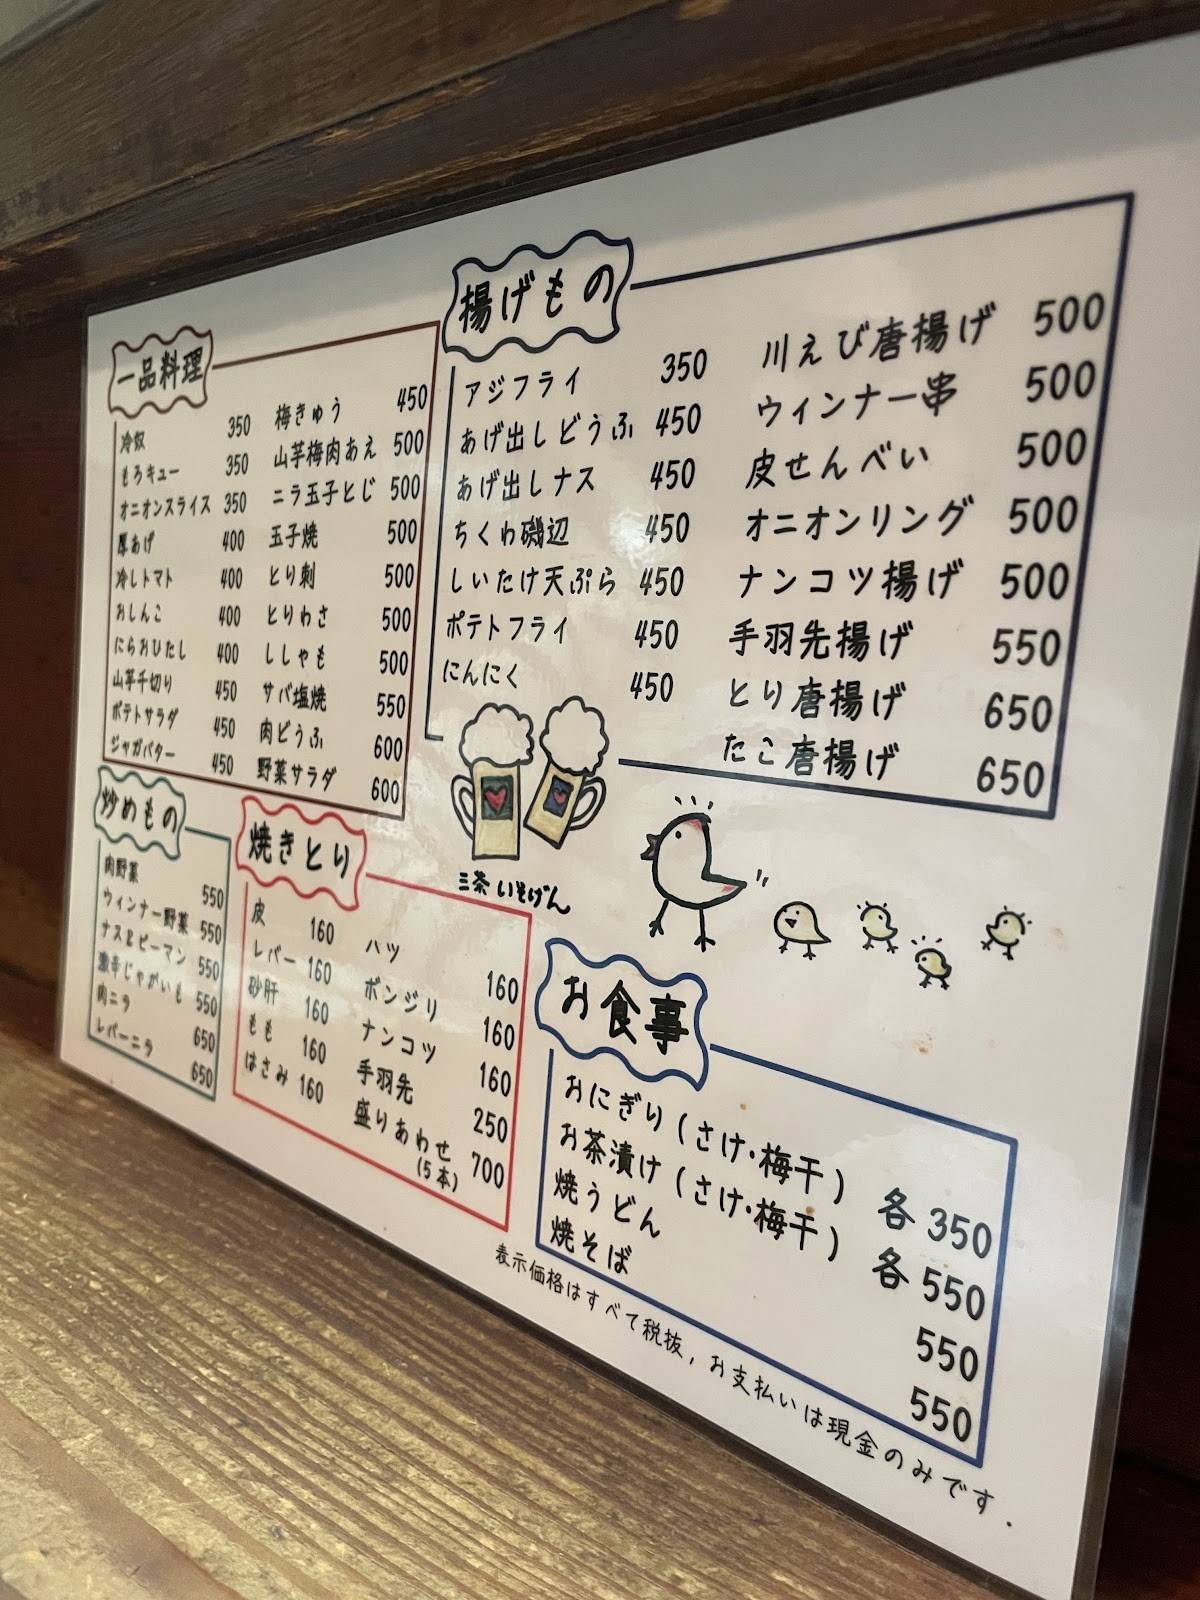 一品料理
冷奴 350
もろキュー 350
オニオンスライス 350
厚あげ 400
冷しトマト 400
おしんこ 400
にらおひたし 400
山芋千切り 450
ポテトサラダ 450
ジャガバター 450
梅きゅう 450
山芋梅肉あえ 500
ニラ玉子とじ 500
玉子焼 500
とり刺 500
とりわさ 500
ししゃも 500
サバ塩焼 550
肉どうふ 600
野菜サラダ 600
揚げもの
アジフライ 350
あげ出しどうふ 450
あげ出しナス 450
ちくわ磯辺 450
しいたけ天ぷら 450
ポテトフライ 450
にんにく 450
川えび唐揚げ 500
ウィンナー串 500
皮せんべい 500
オニオンリング 500
ナンコツ揚げ 500
手羽先揚げ 550
とり唐揚げ 650
たこ唐揚げ 650
炒めもの
肉野菜 550
ウィンナー野菜 550
ナス&ピーマン 550
激辛じゃがいも 550
肉ニラ 650
レバーニラ 650
焼きとり
皮 160
レバー 160
砂肝 160
もも 160
はさみ 160
ハツ 160
ボンジリ 160
ナンコツ 160
手羽先 250
盛りあわせ 700
(5本)
三茶 いそげん
お食事
おにぎり(さけ・梅干) 各350
お茶漬け(さけ・梅干) 各550
焼うどん 550
焼そば 550
表示価格はすべて税抜, お支払いは現金のみです.